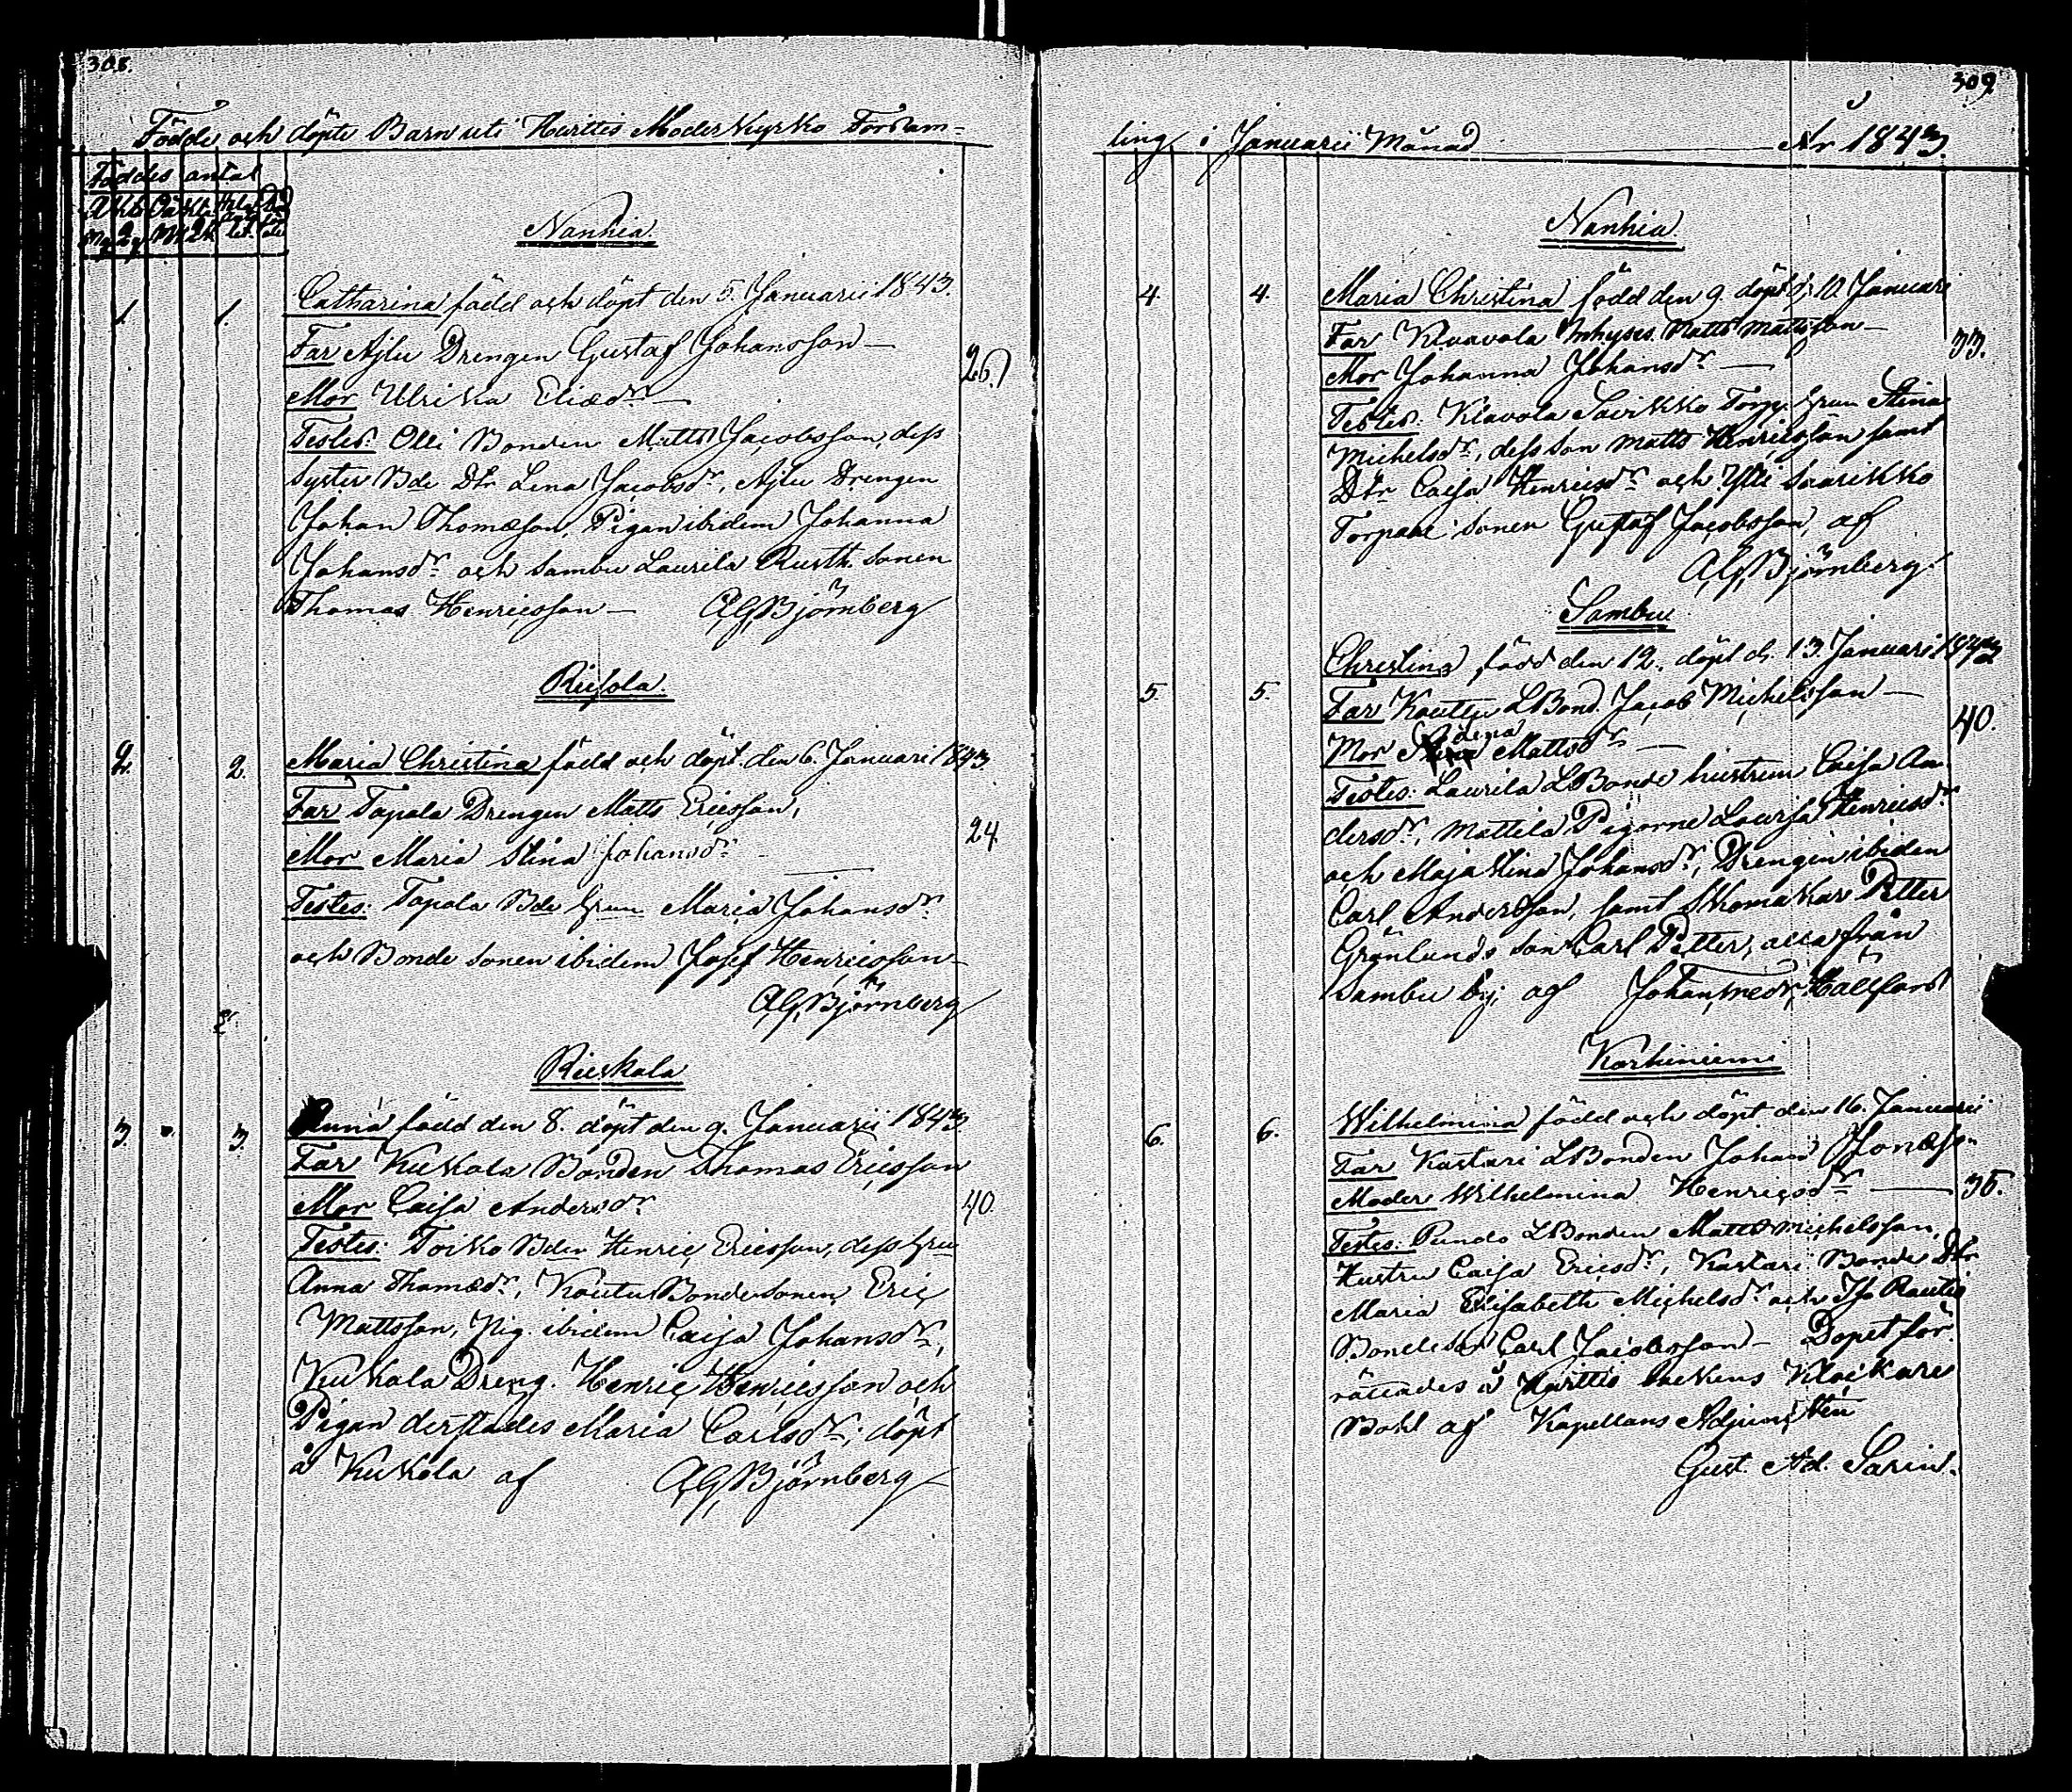 308.
Födde och döpte Barn uti Huittis Moder Kyrko Försam=
Föddes antal
Nanhia.
1. 1. Catharina född och döpt den 5. Januarii 1843.
Far Äjlu Drengen Gustaf Johansson —
26
Mor Ulrika Eliædr —
Testes: Olli Bonden Matts Jacobsson, dess
syster Bde Dtr Lena Jacobsdr, Äjlu Drengen
Johan Thomæson, Pigan ibidem Johanna
Johansdr och Sambu Laurila Rusth. sonen
Thomas Henricsson — A,G,Björnberg
Riesola.
2. 2. Maria Christina född och döpt den 6. Januari 1843.
Far Tapala Drengen Matts Ericsson,
24
Mor Maria Stina Johansdr —
Testes: Tapala Bde hrun Maria Johansdr
och Bonde sonen ibidem Josef Henricsson —
A,G,Björnberg
Rieskala
3. 3. Anna född den 8. döpt den 9. Januarii 1843
Far Kukola Bonden Thomas Ericsson
Mor Caisa Andersdr
40.
Testes: Toiko Bden Henric Ericsson, dess hru
Anna Thomædr, Koutu Bondesonen Eric
Mattsson, Pig. ibidem Caisa Johansdr,
Kukola Dreng. Henric Henricsson och
Pigan derstädes Maria Carlsdr; döpt
å Kukola af A,G,Björnberg
309
ling i Januarii Månad År 1843.
Nanhia
4. 4. Maria Christina född den 9. döpt d. 10. Januari
Far Klaavola Inhyses Matts Mattsson —
33.
Mor Johanna Johansdr —
Testes: Klavola Savikko Torp. hrun Stina
Michelsdr, dess son Matts Henricsson samt
Dtr Caisa Henricsdr och Ylli Saarikko
Torpare sonen Gustaf Jacobsson, af
A,G,Björnberg.
Sambu
Christina, född den 12. döpt d. 13. Januari 1843
5. 5. Far Koutu LBond. Jacob Michelsson —
40.
Mor Mattsdr —
Testes: Laurila LBonde hustrun Caisa An-
dersdr, Mattila Pigorne Lovisa Henricsdr
och Maja Stina Johansdr, Drengen ibidem
Carl Andersson, samt Skomakar Petter
Grönlunds son Carl Petter, alla från
Sambu by; af Hällfors
Karhiniemi
6. 6. Wilhelmina född och döpt den 16. Januarii
Far Kastari LBonden Johan
Moder Wilhelmina Henricsdr — 36.
Testes: Pundo LBonden Matts Michelsson,
Hustru Caisa Ericsdr, Kastari Bonde Dtr
Maria Elisabeth Michelsdr och Iso Rautio
Bondeson Carl Jacobsson — Dopet för-
rättades å Huittis Sockens Klockare
Bohl af Kapellans Adjuncten
Gust. Ad. Sarin.